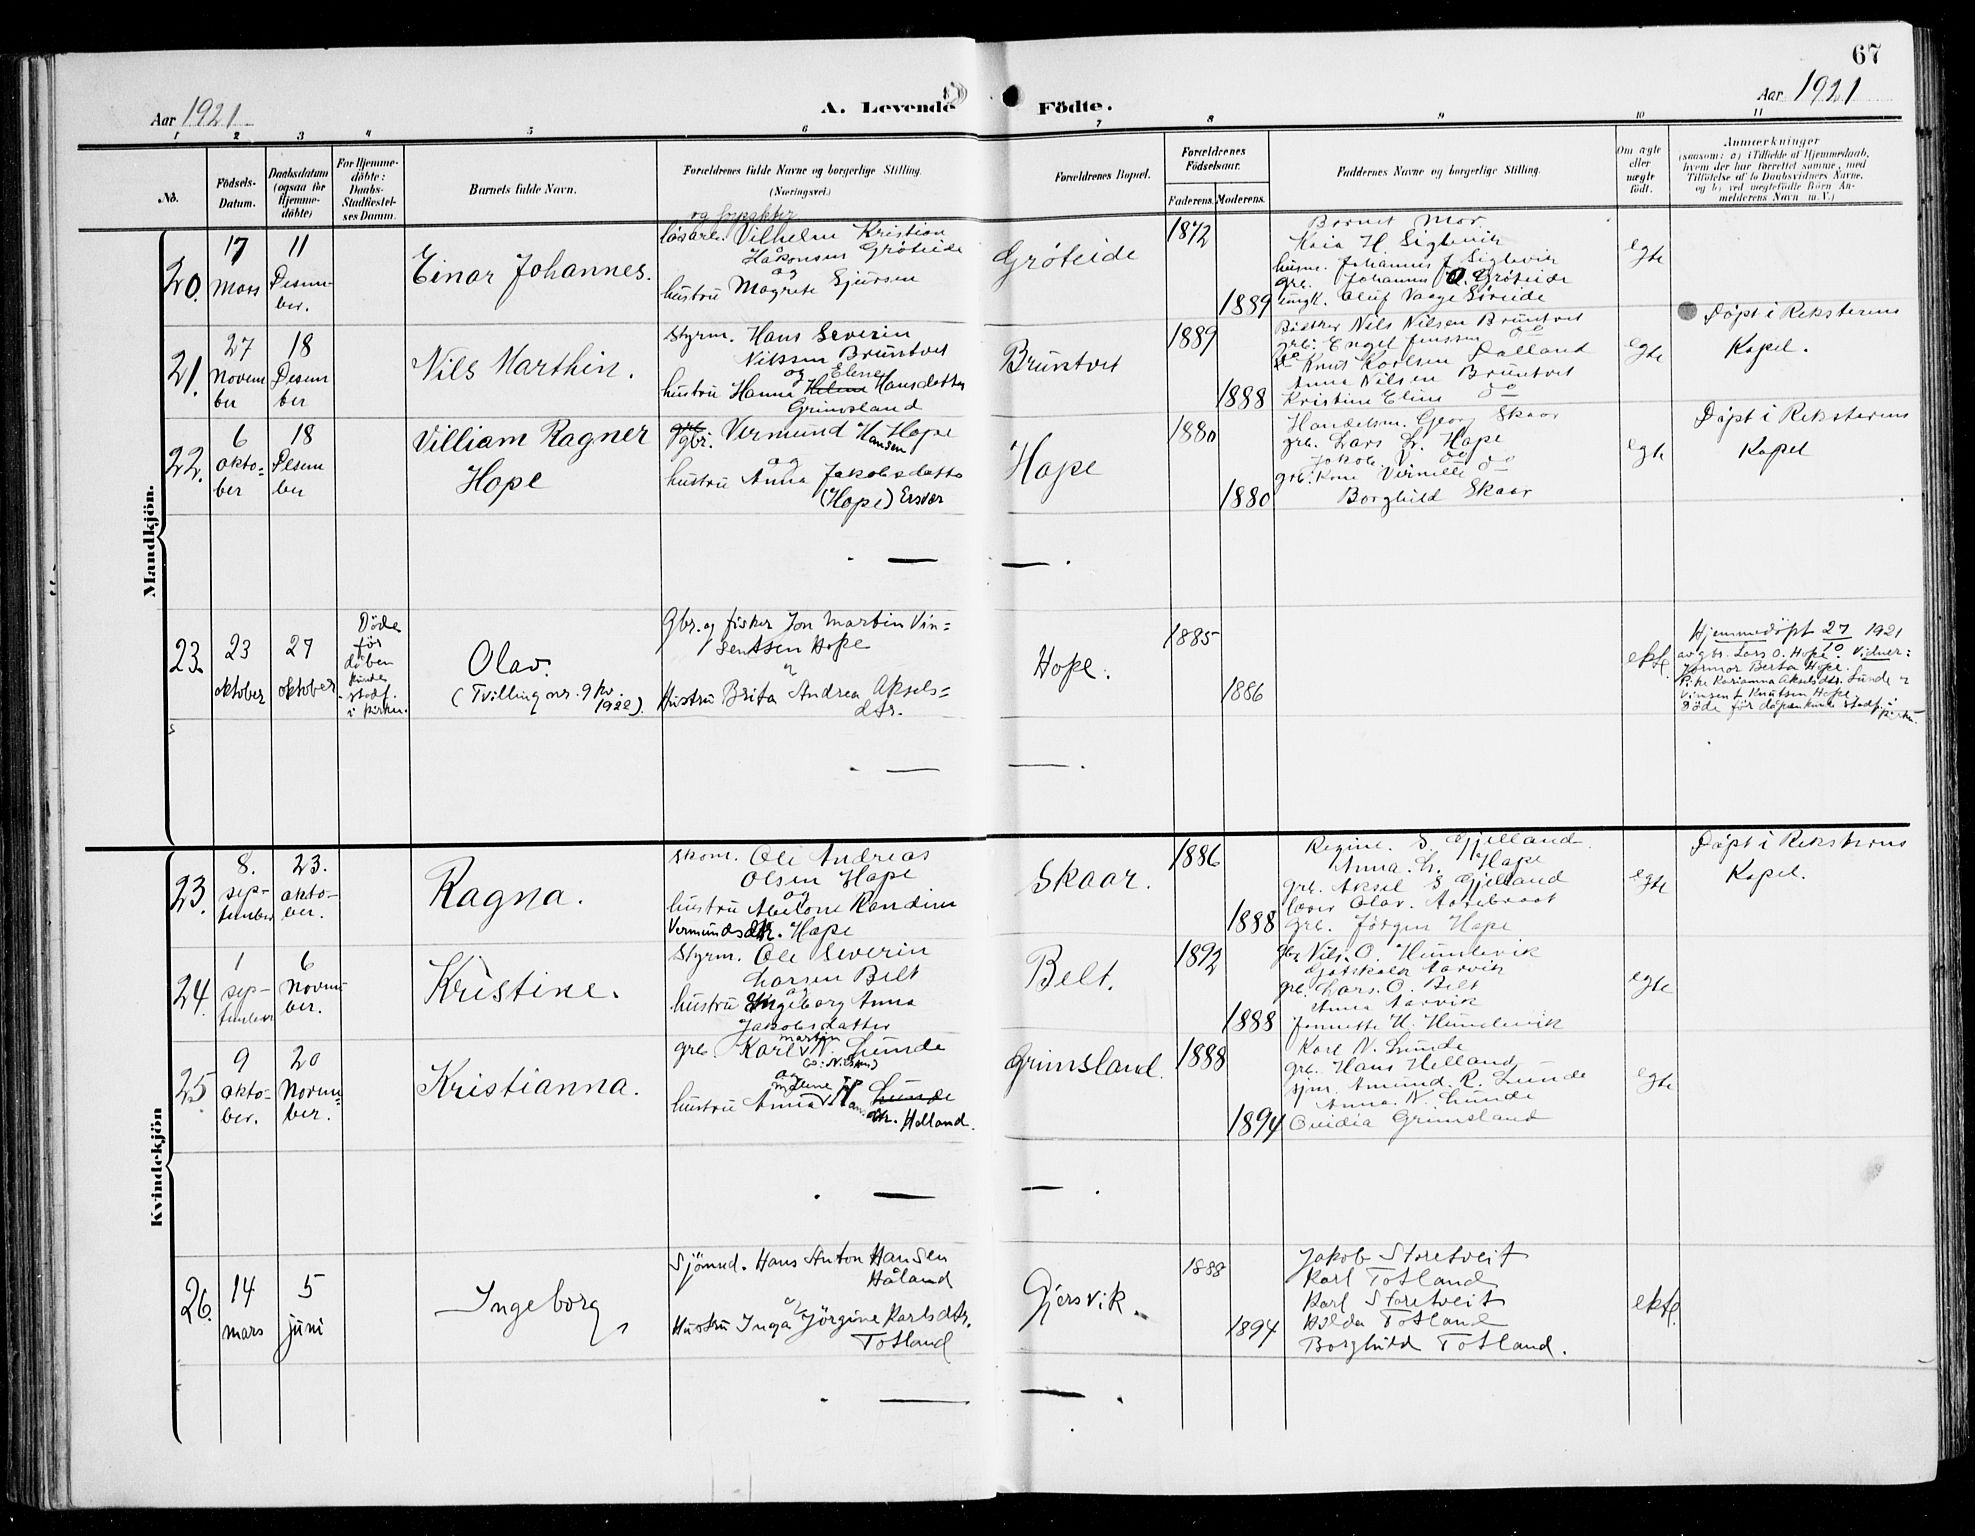 67
Aar 1921
A. Levende Födte.
Aar 1921
1 2 3 4 5 6 7 8 9 10 11
No.
Födsels-
Datum.
Daabsdatum
(ogsaa for
Hjemme-
döbte)
For Hjemme-
döbte:
Daabs-
Stadfæstel-
ses Datum.
Barnets fulde Navn.
Forældrenes fulde Navne og borgerlige Stilling.
(Næringsvei.)
Forældrenes Bopæl.
Forældrenes
Födselsaar.
Faderens. Moderens.
Faddernes Navne og borgerlige Stilling.
Om ægte
eller
uægte
födt.
Anmærkninger
(saasom: a) i Tilfælde af Hjemmedaab,
hvem der har forrettet samme, med
Tilföielse af to Daabsvidners Navne,
og b) ved uægtefödte Börn An-
melderens Navn m. V.)
Mandkjön.
20.
17
Mars
11
Desem-
ber.
Einar Johannes.
Vilhelm Kristian
Håkonsen Gröteide
og
hustru Magrete Sjursen
Gröteide
1872
1889
Barnet Mor
Kaia H Siglevik
husm. Johannes J Siglevik
grb. Johannes O. Gröteide
ungk. Oluf Vaage Söreide
egte
21.
27
Novem
ber
18
Desem
ber
Nils Marthin.
Styrm. Hans Severin
Nilssen Bruntvet
og Elene
hustru Hanna Helene Hansdatter
Grimsland
Bruntvet
1889
1888
Nils Nilsen Bruntvet
grb. Engel Jenssen do
do Knut Karlsen Dalland
Anna Nilsen Bruntvet
Kristine Eline do
egte
Döpt i Reksterens
Kapel.
22.
6
okto-
ber
18
Desem
ber
Villiam Ragner
Hope
gbr. Vermund Hansen Hope
og
hustru Anna Jakobsdatter
(Hope) Ersvær
Hope
1880
1880
Handelsm. Georg Skaar
grb. Lars L. Hope
Jakob V. do
grb. Kone Virnille do
Borghild Skaar
egte
Döpt i Reksterens
Kapel
23.
23
oktober
27
oktober
Döde
før
dåben
kunde
stadf.
i kirken.
Olav.
(Tvilling nr. 9 kv.
1922).
Gbr. og fisker Jon Martin Vin=
sentsen Hope
og
Hustru Brita Andrea Aksels=
dtr.
Hope.
1885
1886
ekte.
Hjemmedöpt 27/10 1921
av gbr. Lars O. Hope. Vidner:
Jormor Berta Hope.
Pike Karianna Akselsdtr. Lunde og
Vinsent Knutsen Hope.
Döde för dåpen kunde stadf. i
kirken.
Kvindekjön
23.
8.
sep-
tember
23.
okto-
ber.
Ragna.
Skom. Ole Andreas
Olsen Hope
og
hustru Abelone Randine
Vermundsdtr. Hope
Skaar.
1886
1888
Regine. S. Gjelland.
Anna. L. Hope
grb. Aksel S Gjelland
Olav. Aarebraat
grb. Jörgen Hope
egte
Döpt i Reksterens
Kapel.
24.
1
sep-
tember
6
Novem
ber.
Kristine.
Styrm. Ole Severin
Larsen Belt
og
hustru Ingeborg Anna
Jakobsdatter
Belt.
1892
1888
gbr Nils. O. Hundevik
Gotskalk Aarvik
grb. Lars. O. Belt
Anna Aarvik
Jennette H. Hundevik
egte
25.
9
okto-
ber.
20
Novem=
ber.
Kristianna.
martin
grb. Karl N. Lunde
og
hustru Anna malene Han Lunde
dtr. Helland.
Grimsland.
1888
1894
Karl N. Lunde
grb. Hans Helland
sjm. Amund. R. Lunde
Anna. N. Lunde
Ovidia Grimsland
egte
26.
14
mars
5
juni
Ingeborg
Sjömd. Hans Anton Hansen
Håland
og
Hustru Inga Jörgine Karlsdtr.
Totland
Gjersvik.
1888
1894
Jakob Storetveit
Karl Totland
Karl Storetveit
Hilda Totland
Borghild Totland.
ekte.